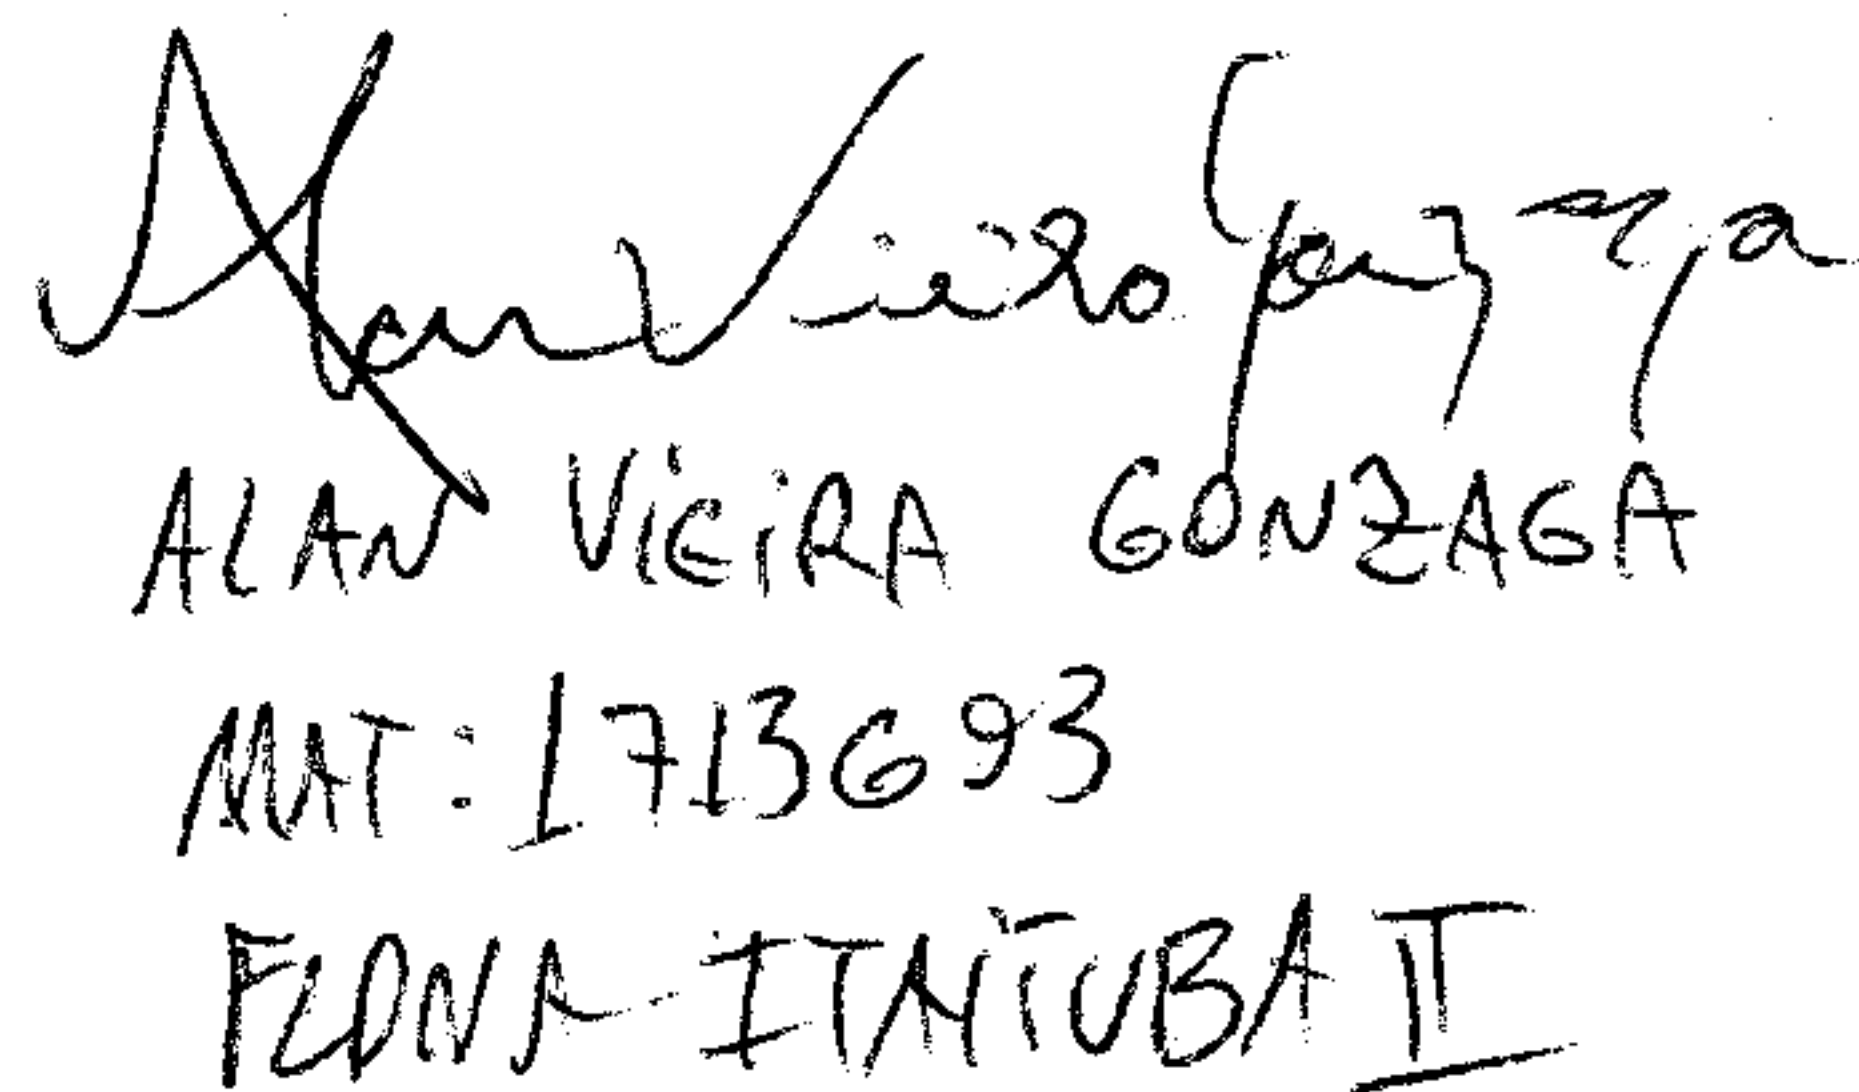 Alan Vieira Gonzaga
ALAN VIEIRA GONZAGA
MAT: 1713693
FLONA ITAITUBA II